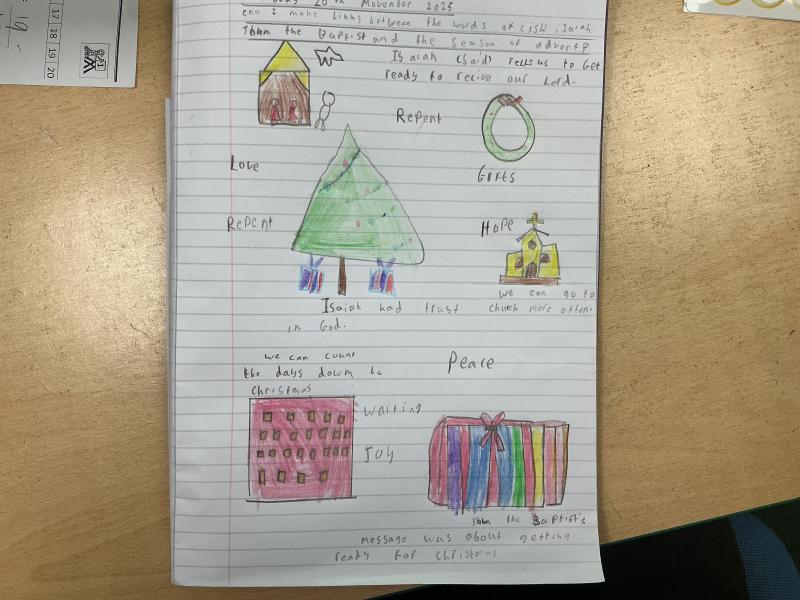 20th November 2025
can I make links between the words of Isaiah
John the Baptist and the season of advent?
Isaiah (said) Tells us to Get
ready to recive our Lord.
Repent
Love
Gifts
Repent
Hope
we can go to
church more often.
Isaiah had trust
in God.
we can count
the days down to
Christmas
Peace
waiting
Joy
John the Baptist's
message was about getting
ready for Christmas
17 18 19 20
19